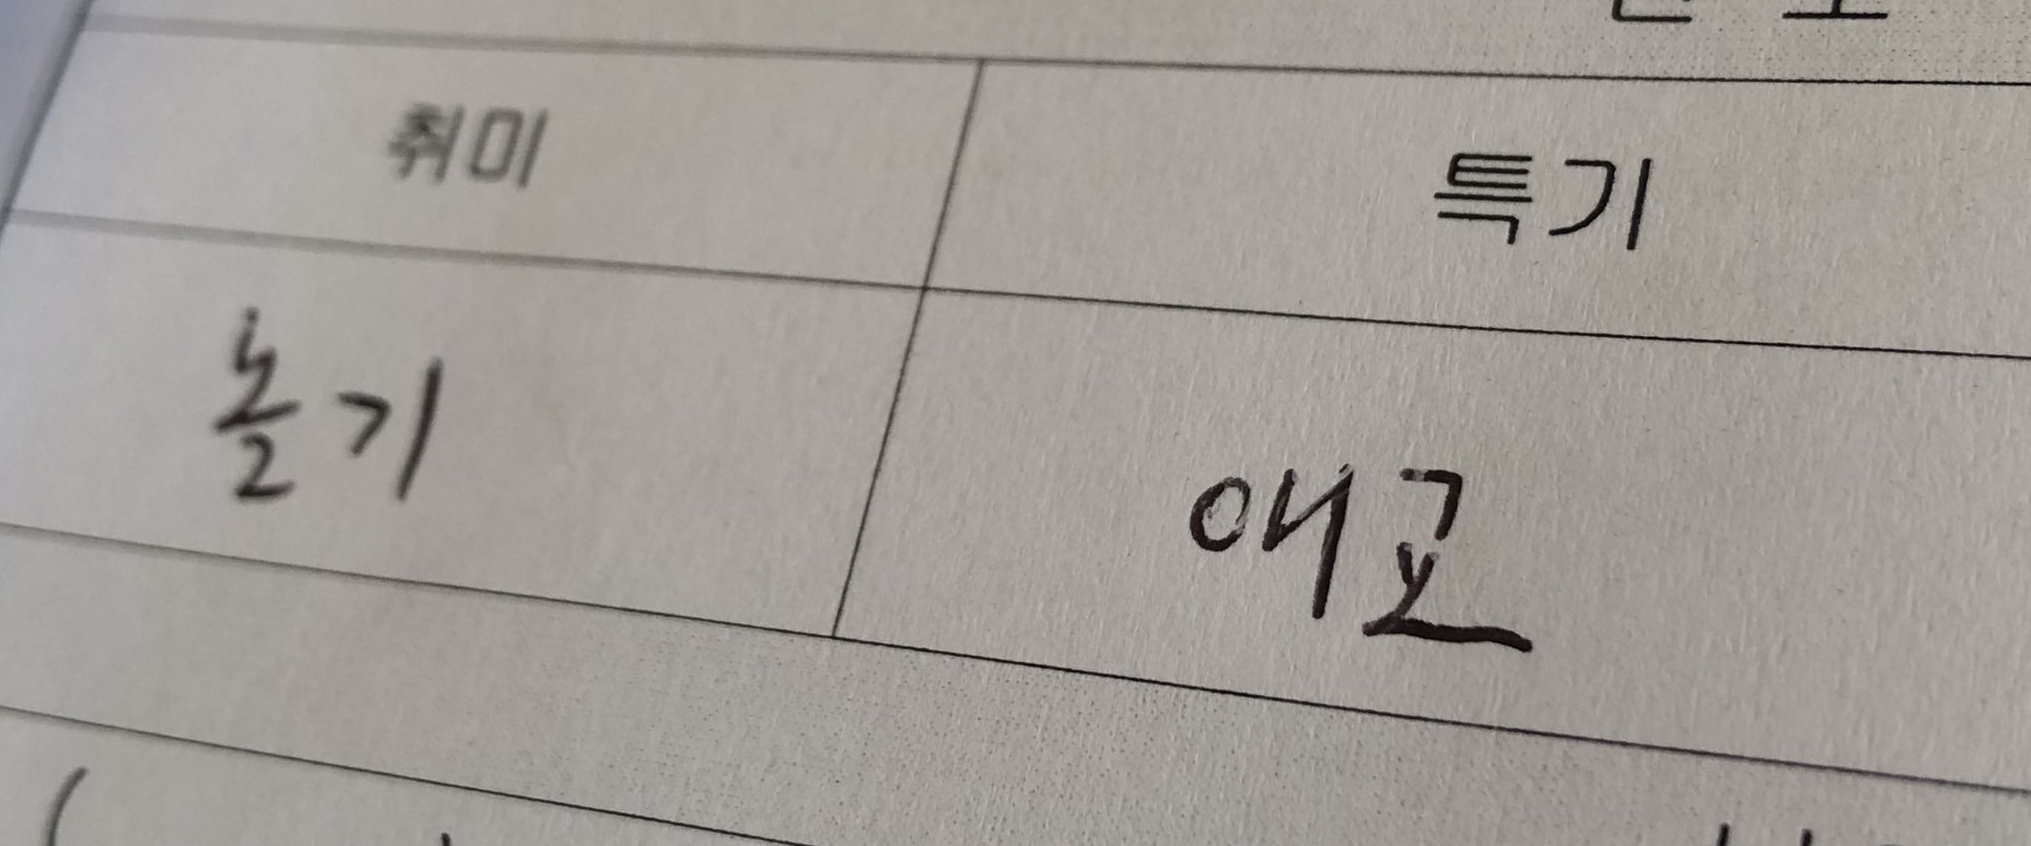 취미 특기
놀기 애교